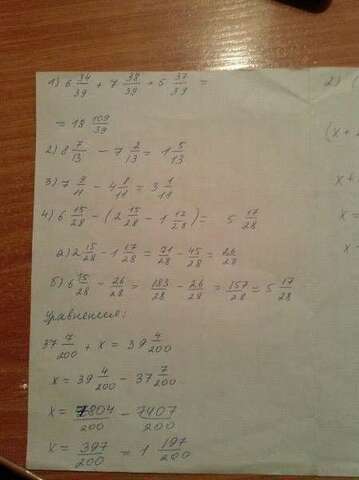 1) 6 34/39 + 7 38/39 + 5 37/39 =
= 18 109/39
2) 8 7/13 - 7 2/13 = 1 5/13
3) 7 9/11 - 4 8/11 = 3 1/11
4) 6 15/28 - (2 15/28 - 1 17/28) = 5 17/28
а) 2 15/28 - 1 17/28 = 71/28 - 45/28 = 26/28
б) 6 15/28 - 26/28 = 183/28 - 26/28 = 157/28 = 5 17/28
Уравнения:
37 7/200 + x = 39 4/200
x = 39 4/200 - 37 7/200
x = 7804/200 - 7407/200
x = 397/200 = 1 197/200
2)
(x +
x +
x =
x